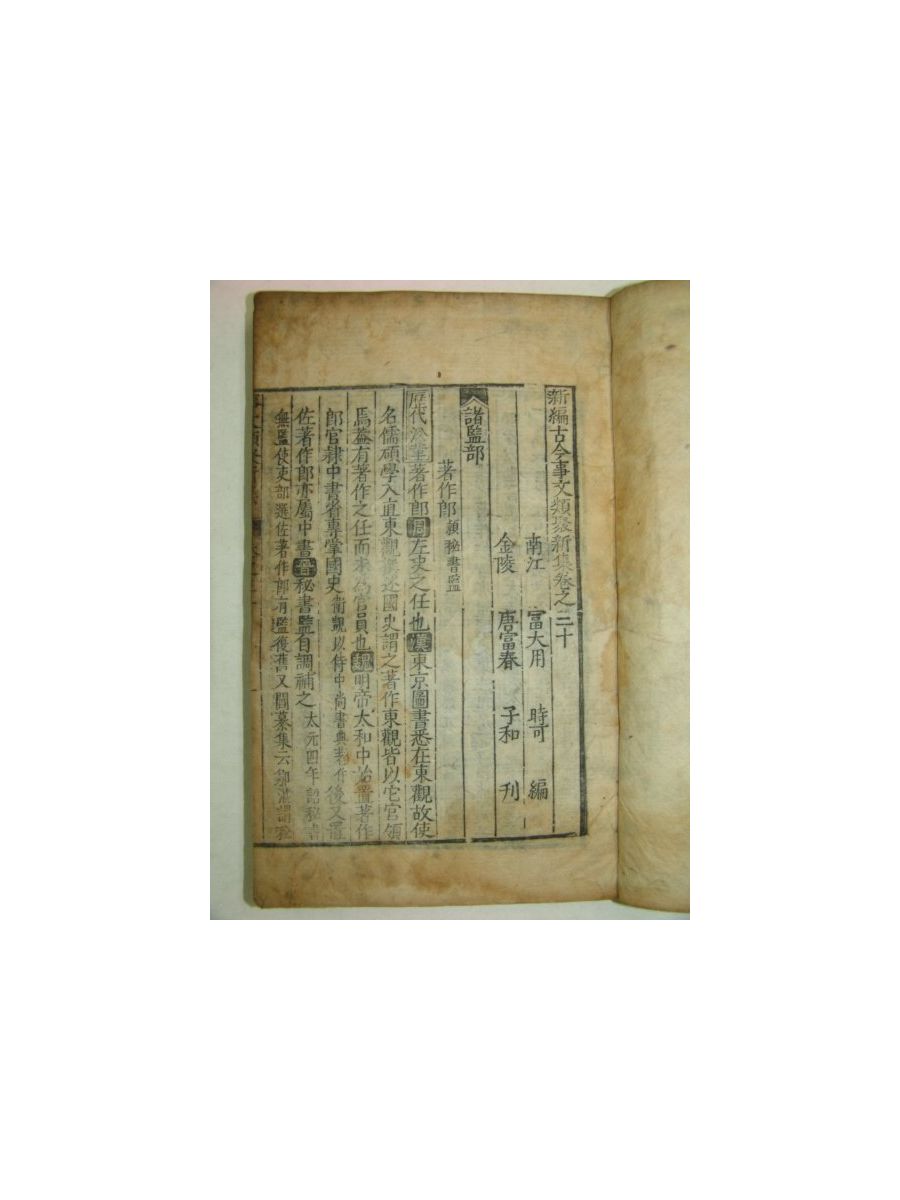 新編古今事文類聚新集卷之三十
南江 富大用 時可 編
金陵 唐富春 子和 刊
諸監部
著作郎 顧秘書監
歷代沿革著作郎周左史之任也漢東京圖書悉在東觀故使
名儒碩學入直東觀撰述國史謂之著作東觀皆以它官領
焉蓋有著作之任而未爲官員也魏明帝太和中始置著作
郎官隷中書省專掌國史衛覬以侍中尚書典著作後又置
佐著作郎亦屬中書晉秘書監自調補之太元四年詔秘書
無監使吏部選佐著作郎有監復舊又閻纂集云鄒湛謂秘